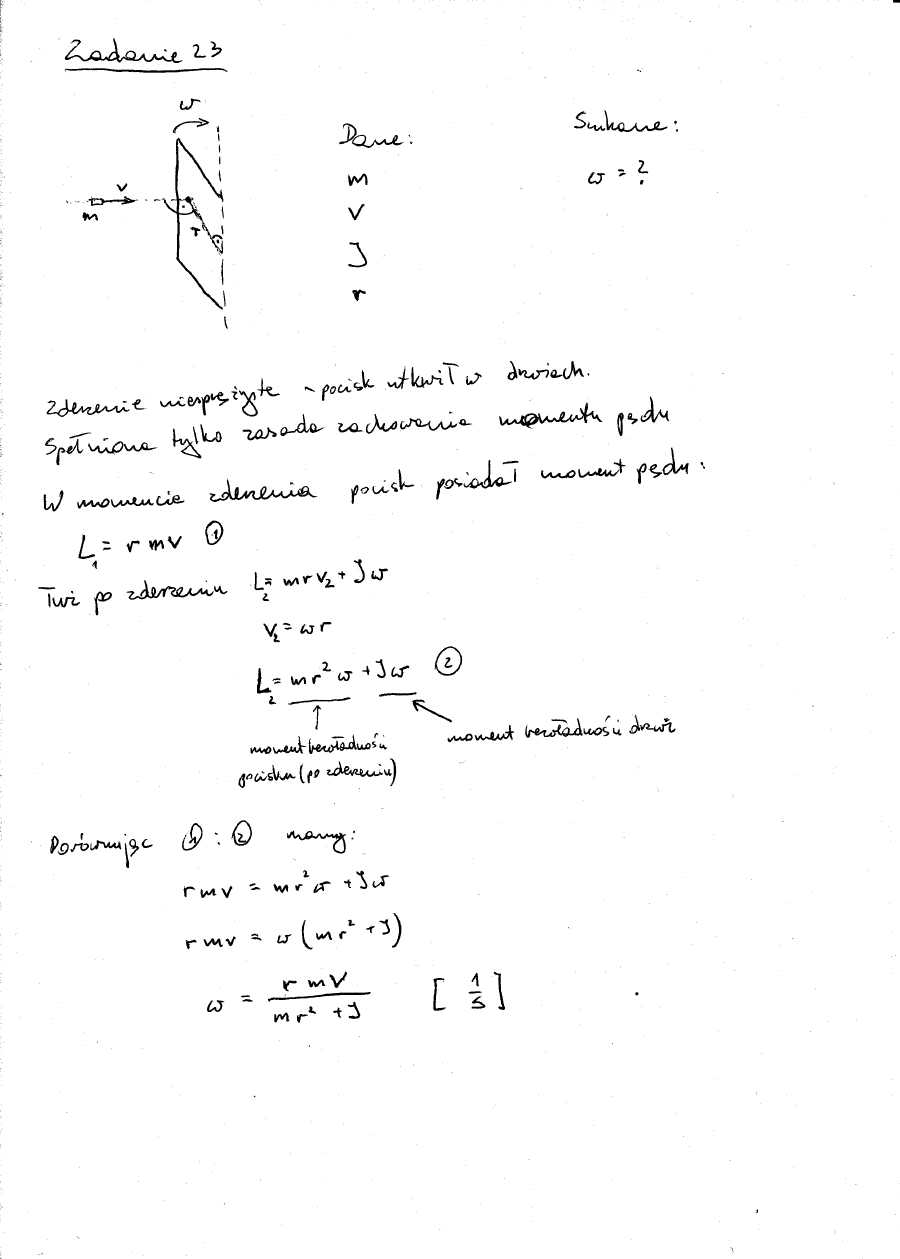 Zadanie 23
ω
Dane:
Szukane:
m
ω = ?
v
m
r
V
J
r
Zderzenie niesprężyste - pocisk utkwił w drzwiach.
Spełniona tylko zasada zachowania momentu pędu
W momencie zderzenia pocisk posiadał moment pędu:
L₁ = r m v ①
Tuż po zderzeniu L₂ = m r v₂ + J ω
v₂ = ω r
L₂ = m r² ω + J ω ②
moment bezwładności
pocisku (po zderzeniu)
moment bezwładności drzwi
Porównując ① : ② mamy:
r m v = m r² ω + J ω
r m v = ω (m r² + J)
ω = r m V / m r² + J [ 1/s ]